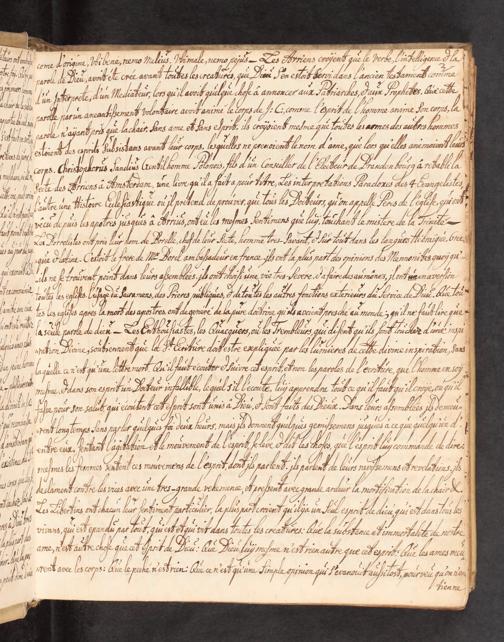 come l'origine, Ubi bene, nemo melius, Ubi male, nemo pejus — Les Arriens croyent que le verbe, l'intelligence & la
parole de Dieu, avoit été créé avant toutes les creatures, que Dieu s'en estoit servi dans l'ancien testament comme
d'un Interprete, d'un Mediateur, lors qu'il avoit quelque chose à annoncer aux Patriarches, & aux Prophetes. Que cette
parole par un aneantissement volontaire avoit animé le corps de J. C. comme l'esprit de l'homme anime son corps, la
parole n'ayant pris que la chair sans ame et sans esprit. ils croyoient mesme que toutes les ames des autres hommes
estoient des esprits subsistans avant leur corps, lesquelles ne prenoient le nom d'ame, que lors qu'elles animoient leurs
corps. Christophorus Sandius Gentilhomme Prussien, fils d'un Conseiller de l'Electeur de Brandenbourg a rétabli la
secte des Arriens à Amsterdam, une livre qu'il a fait a pour titre, Les interpretations Paradoxes des 4 Evangelistes
& l'autre une Histoire Ecclesiastique où il pretend de prouver que tous les Docteurs, qu'on appelle Peres de l'Eglise, qui ont
vecu depuis les apotres jusques à Arrius, ont eu les mesmes sentimens que luy, touchant le mistere de la Trinité —
Les Borrelistes ont pris leur nom de Borelle, chef de leur secte, homme tres-savant, & sur tout dans les langues Hebraique, Grec-
que & latine. C'estoit le frere de Mr Borel ambassadeur en france. ils ont la plus part des opinions des Mennonites quoy qu'
ils ne se trouvent point dans leurs assemblées, ils ont choisi une vie tres severe, & faire des aumones, ils ont en aversion
toutes les eglises, l'usage des Sacremens, des Prieres publiques, & de toutes les autres fonctions exterieurs du service de Dieu. Que tou-
tes les eglises apres la mort des apostres ont degeneré de la pure doctrine qu'ils avoient preschée au monde, qu'il ne faut lire que
la seule parole de dieu. — Les Enthousiastes, les Quacquers, ou les trembleurs qui disent qu'ils sont douez d'une inspi-
ration Divine, soutiennent que la Ste Ecriture doit estre expliquée par les lumieres de cette divine inspiration, sans
laquelle ce n'est qu'une lettre mort. Qu'il faut écouter & suivre cet esprit, et non les paroles de l'ecriture, que l'homme en soy
mesme, & dans son esprit un Docteur infallible, lequel s'il l'écoute, luy apprendra tout ce qu'il faut qu'il croye, ou qu'il
fasse, pour son salut, qui ecoutent cet esprit sont unis à Dieu, & sont faits des Dieux. Dans leurs assemblées ils demeu-
rent longtemps sans parler quelque foi deux heures, mais ils donnent quelques gemissemens jusques à ce que quelqu'un d'
entre eux, sentant l'agitation et le mouvement de l'esprit, se leve, & dit les choses, que l'esprit luy commande de dire:
mesmes les femmes sentent ces mouvemens de l'esprit dont ils parlent. ils parlent de leurs ravissemens et revelations, ils
declament contre les vices avec une tres-grande vehemence, et pressent avec grande ardeur la mortification de la chair &.
Les Libertins ont chacun leur sentiment particulier, la plus part croient qu'il y a un seul esprit de dieu, qui est dans tous les
vivans, qui est epandu par tout, qui est et qui vit dans toutes les creatures: Que la substance et immortalité de nostre
ame, n'est autre chose que cet Esprit de Dieu: Que Dieu luy mesme n'est rien autre que cet esprit: Que les ames meu-
rent avec les corps: Que le peché n'est rien. Que ce n'est qu'une simple opinion qui s'evanoüit aussi tost, pourveu qu'on n'en
tienne